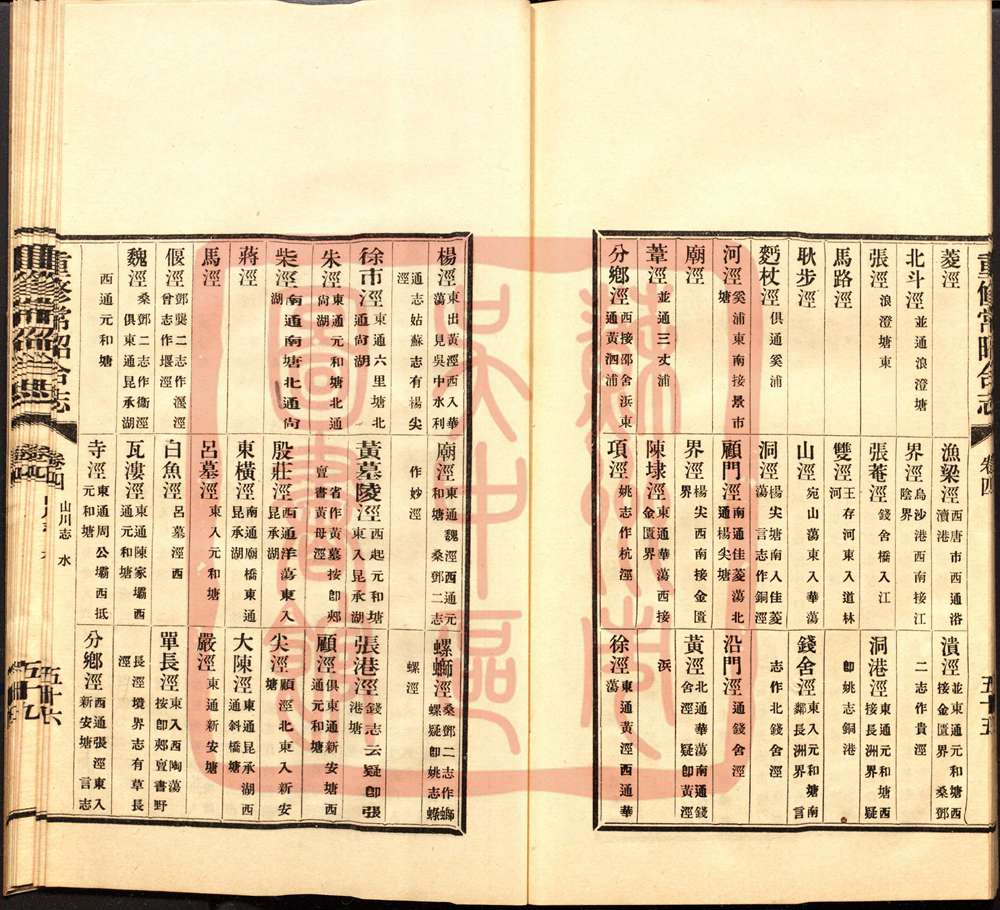 重修常昭合志 卷四 五十五
菱涇 漁梁涇西唐市西通涪瀆港 潰涇並東通元和塘西接金匱界桑鄧
北斗涇並通浪澄塘 界涇烏沙港西南接江陰界 二志作貴涇
張涇浪澄塘東 張菴涇錢舍橋入江 洞港涇東通元和塘西接長洲界疑
馬路涇 雙涇王存河東入道林河 即姚志銅港
耿步涇 山涇宛山蕩東入華蕩 錢舍涇東入元和塘南鄰長洲界言
杖涇俱通奚浦 洞涇楊尖塘南入佳菱蕩言志作銅涇 志作北錢舍涇
河涇奚浦東南接景市塘 顧門涇南通佳菱蕩北通楊尖塘 沿門涇通錢舍涇
廟涇 界涇楊尖西南接金匱界 黃涇北通華蕩南通錢舍涇疑即黃涇
葦涇並通三丈浦 陳埭涇東通華蕩西接金匱界 浜
分鄉涇西接邵舍浜東通黃泗浦 項涇姚志作杭涇 徐涇東通黃涇西通華蕩
楊涇東出黃涇西入華蕩見吳中水利 廟涇東通魏涇西通元和塘桑鄧二志 螺螄涇桑鄧二志作螄螺疑即姚志蠑
通志姑蘇志有楊尖涇 作妙涇 螺涇
徐市涇東通六里塘北通尚湖 黃墓陵涇西起元和塘東入昆承湖 張港涇錢志云疑即張港塘
朱涇東通元和塘北通尚湖 省作黃墓按即郟亶書黃母涇 顧涇俱東通新安塘西通元和塘
柴涇南通南塘北通尚湖 殷莊涇西通洋蕩東入昆承湖 尖涇顧涇北東入新安塘
蔣涇 東橫涇南通廟橋東通昆承湖 大陳涇東通昆承湖西通斜橋塘
馬涇 呂墓涇東入元和塘 嚴涇東通新安塘
偃涇鄧龔二志作溼涇曾志作堰涇 白魚涇呂墓涇西 單長涇東入西陶蕩按即郟亶書野
魏涇桑鄧二志作衞涇俱東通昆承湖 瓦漊涇東通陳家壩西通元和塘 長涇境界志有草長涇
西通元和塘 寺涇東通周公壩西抵元和塘 分鄉涇西通張涇東入新安塘言志
重修常昭合志 卷四 山川志 水 五十六